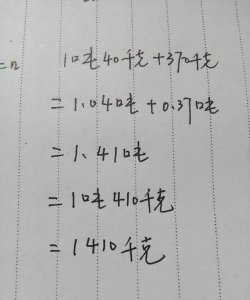 =n 1吨40千克+370千克
=1.040吨+0.370吨
=1.410吨
=1吨410千克
=1410千克